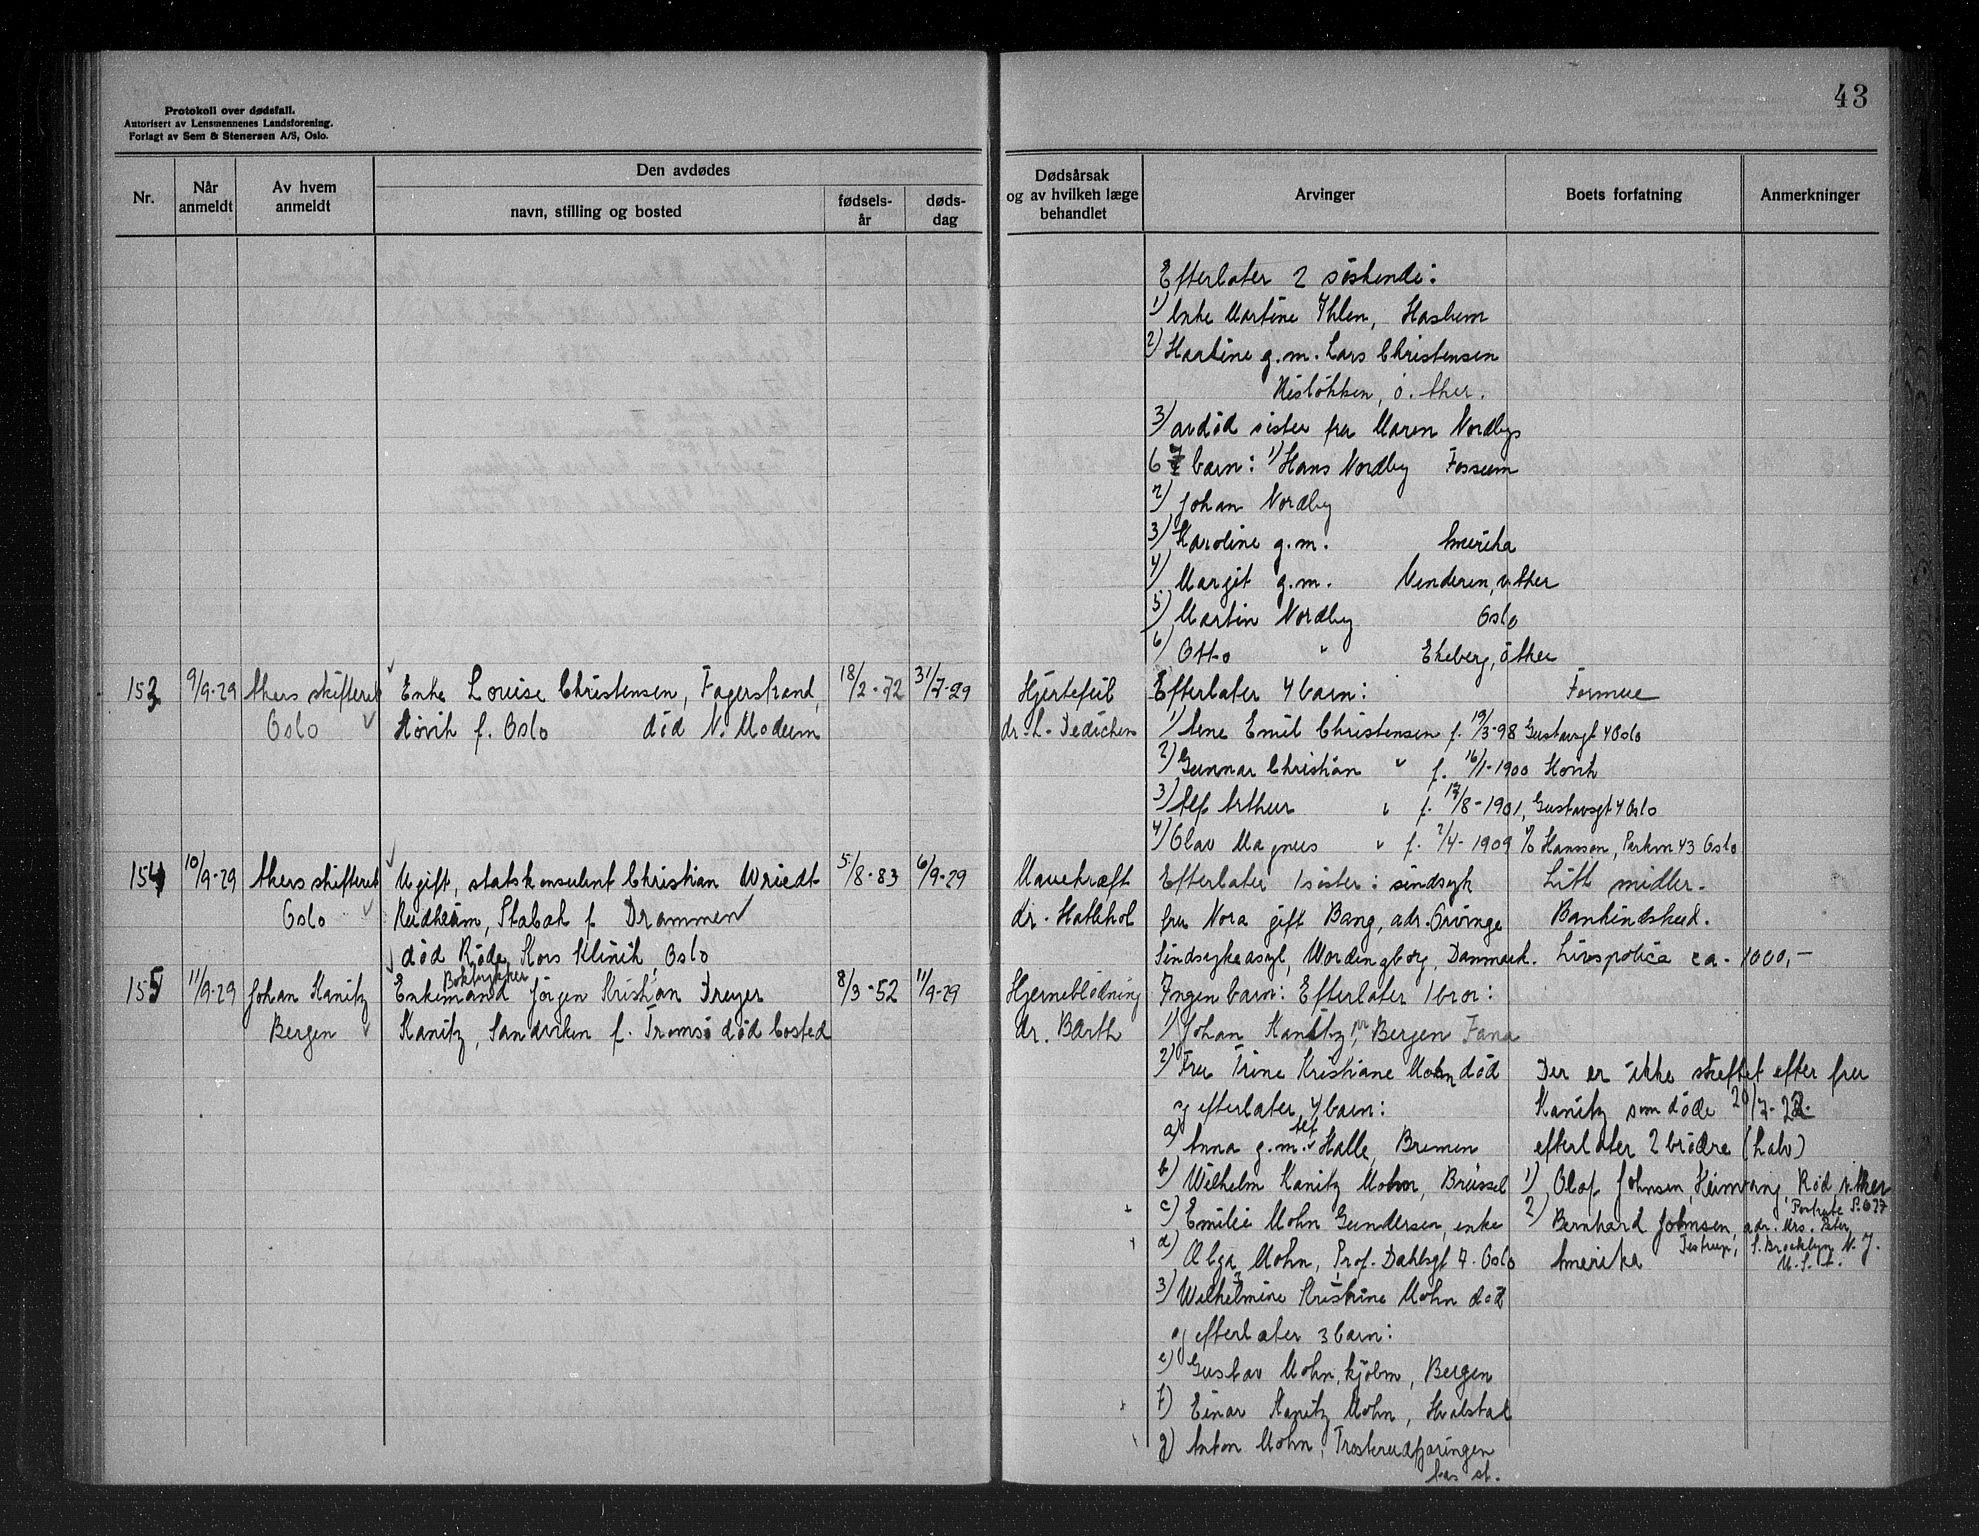 Protokoll over dødsfall.
Autorisert av Lensmennenes Landsforening.
Forlagt av Sem & Stenersen A/S, Oslo.
43
Nr.
Når anmeldt
Av hvem anmeldt
Den avdødes
navn, stilling og bosted
fødsels-år
døds-dag
Dødsårsak og av hvilken læge behandlet
Arvinger
Boets forfatning
Anmerkninger
Efterlater 2 søskende:
1) Enke Martine Ihlen, Haslum
2) Martine g.m. Lars Christensen
Risløkken, ø. Aker.
3) avdød søster fru Maren Nordbys
6 barn: 1) Hans Nordby Fossum
2) Johan Nordby
3) Karoline g.m. Amerika
4) Margit g.m. Vinderen, v. Aker
5) Martin Nordby Oslo
6) Otto " Ekeberg, ø Aker
153 9/9-29 Akers skifterett Enke Louise Christensen, Fagerstrand, 18/2-72 31/7-29 Hjertefeil Efterlater 4 barn: Formue
Oslo Høvik f. Oslo død N. Modum dr. L. Dedichen 1) Arne Emil Christensen f. 19/3-98 Gustavsgt 4 Oslo
2) Gunnar Christian " f. 16/1-1900 Høvik
3) Alf Arthur " f. 17/8-1901, Gustavsgt 4 Oslo
4) Olav Magnus " f. 2/4-1909 c/o Hansson, Parkvn 43 Oslo
154 10/9-29 Akers skifterett Ugift, statskonsulent Christian Wriedt 5/8-83 6/9-29 Mavekræft Efterlater 1 søster: sindsyk Litt midler.
Oslo Reidheim, Stabæk f. Drammen dr. Hatlehol fru Nora gift Bang, adr. Oringe Bankindskud.
død Røde Kors Klinik, Oslo Sindsykeasyl, Wordingborg, Danmark. Livspolice ca. 1000,-
155 11/9-29 Johan Kanitz Enkemand Boktrykker Jørgen Kristian Dreyer 8/3-52 11/9-29 Hjerneblødning Ingen barn: Efterlater 1 bror:
Bergen Kanitz, Sandviken f. Tromsø død bosted dr. Barth 1) Johan Kanitz, Bergen Fana
2) Fru Trine Kristiane Mohn død Der er ikke skiftet efter fru
og efterlater 4 barn: Kanitz som døde 20/7-22.
a) Anna g.m. Alf Halle, Bremen efterlater 2 brødre (halv)
b) Wilhelm Kanitz Mohn, Brüssel 1) Olaf Johnsen, Heimvang, Rød, v. Aker
c) Emilie Mohn Gundersen, enke 2) Bernhard Johnsen, adr. Mrs. Peter
d) Olga Mohn, Prof. Dahlsgt 7. Oslo Amerika Testrup, S. Brooklyn N.Y. U.S.A.
3) Wilhelmine Kristine Mohn død
og efterlater 3 barn:
e) Gustav Mohn, kjøbm, Bergen
f) Einar Kanitz Mohn, Hvalstad
g) Anton Mohn, Trosterudfaringen